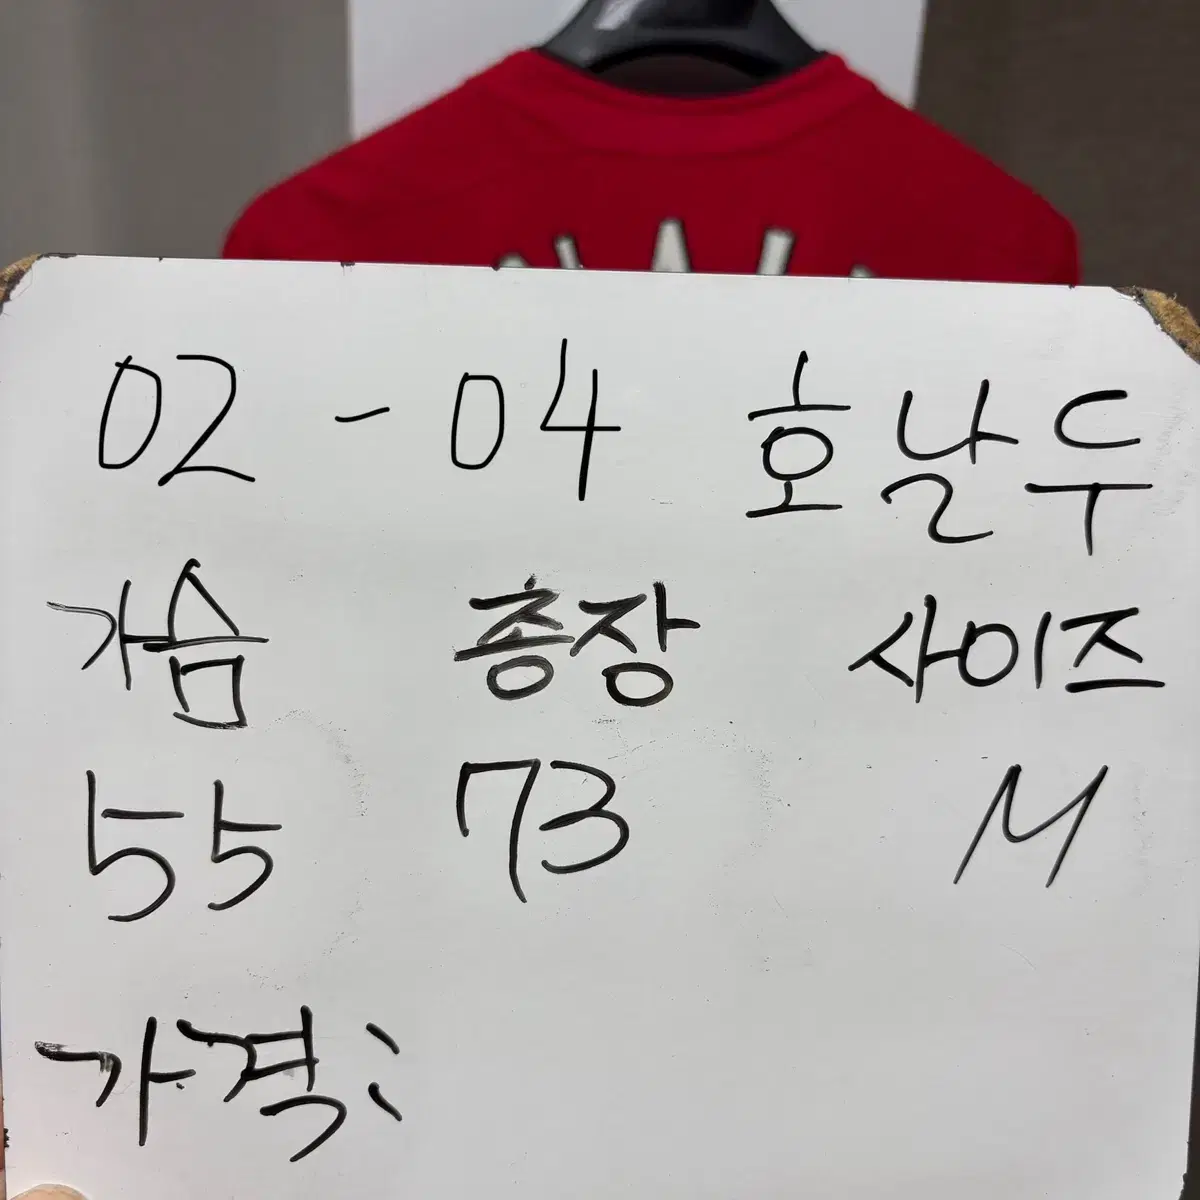 02 - 04 호날두
가슴 총장 사이즈
55 73 M
가격: